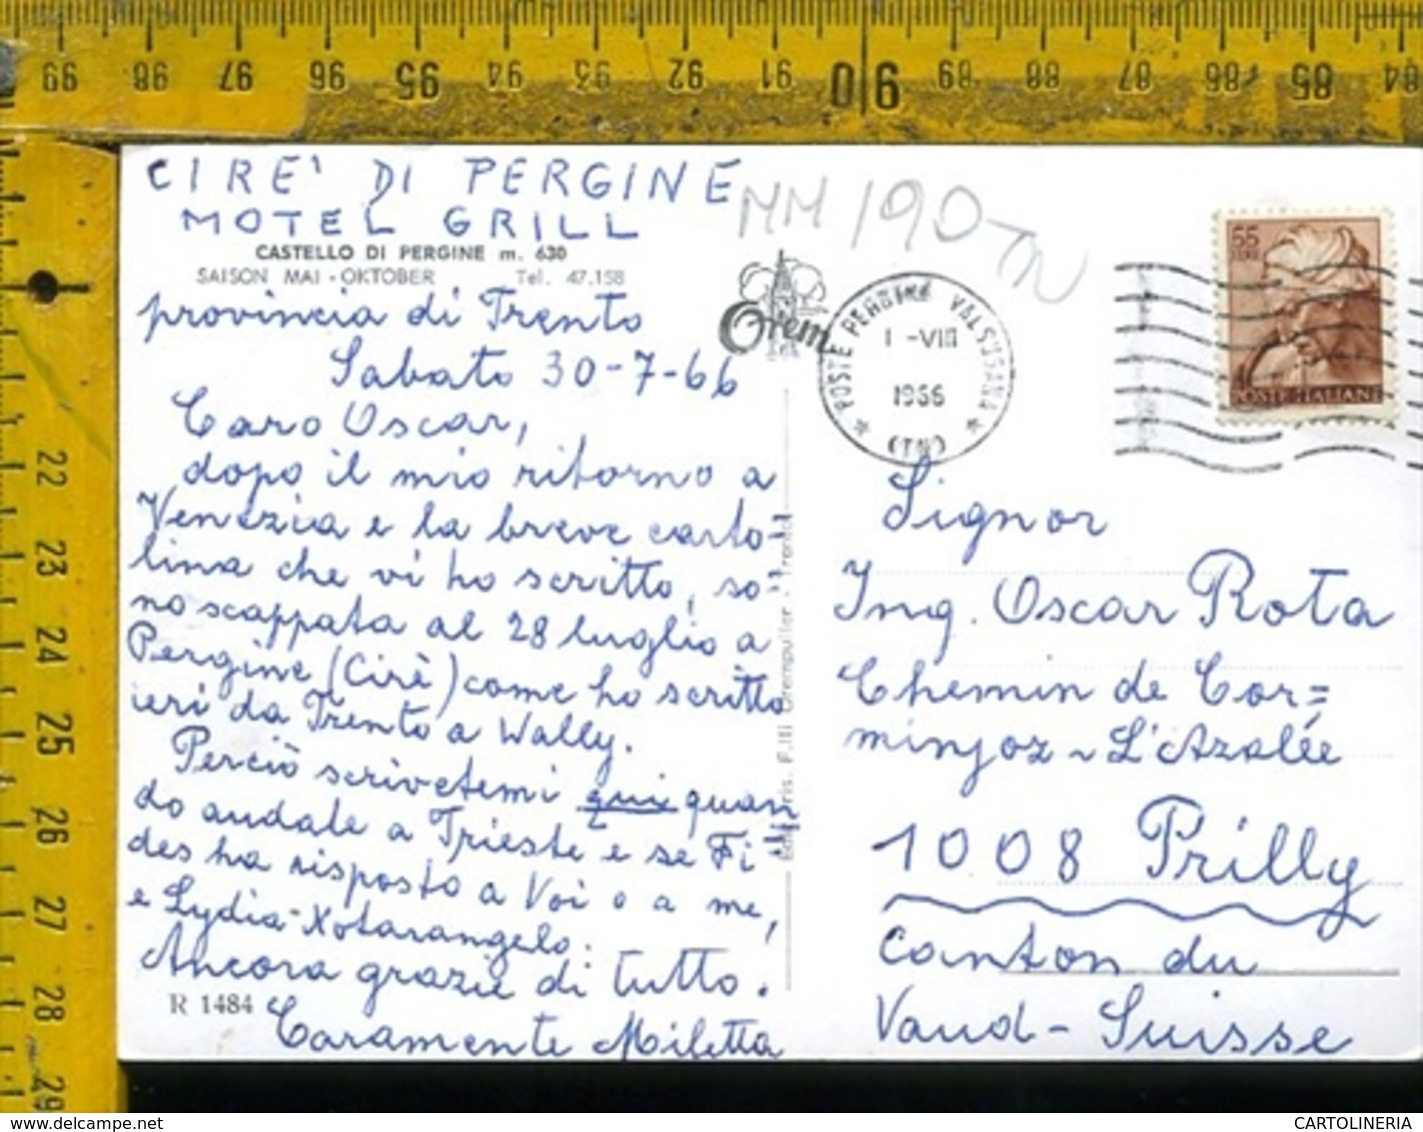 99 98 97 96 95 94 93 92 91 90 89 88 87 86 85 84
22
23
24
25
26
27
28
29
CIRE' DI PERGINE
MOTEL GRILL
CASTELLO DI PERGINE m. 630
SAISON MAI - OKTOBER Tel. 47.158
provincia di Trento
Sabato 30-7-66
Caro Oscar,
dopo il mio ritorno a
Venezia e la breve carto=
lina che vi ho scritto, so=
no scappata al 28 luglio a
Pergine (Cirè) come ho scritto
ieri da Trento a Wally.
Perciò scrivetemi qui quan
do andate a Trieste e se Fi=
des ha risposto a Voi o a me,
e Lydia Xotarangelo.
Ancora grazie di tutto.
R 1484
Caramente Miletta
MM 190-TN
POSTE PERGINE VALSUGANA
1 -VIII
1966
(TN)
55
LIRE
POSTE ITALIANE
Signor
Ing. Oscar Rota
Chemin de Cor=
minjoz - L'Azalée
1008 Prilly
Canton du
Vaud - Suisse
www.delcampe.net
CARTOLINERIA